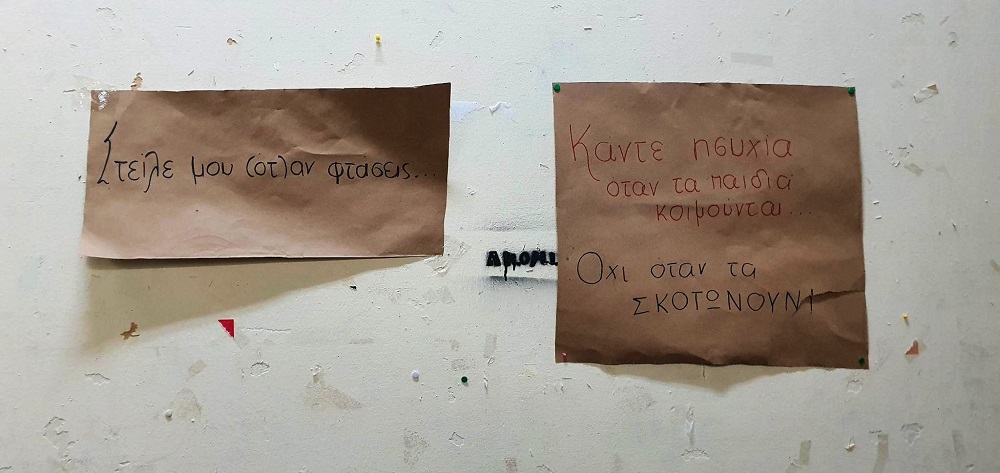 Στείλε μου (ότ)αν φτάσεις...
Καντε ησυχία
όταν τα παιδιά
κοιμούνται...
Όχι όταν τα
ΣΚΟΤΩΝΟΥΝ!